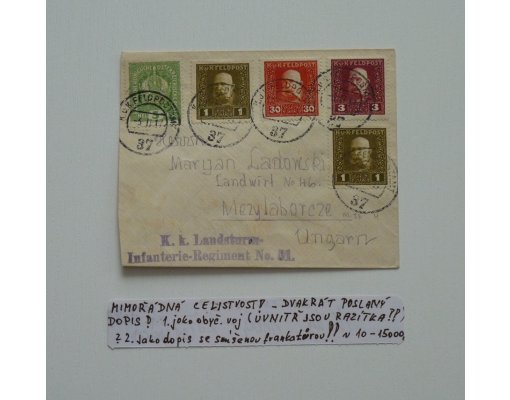 K.u.K. FELDPOST K.u.K. FELDPOST K.u.K. FELDPOST
1 1 30 30 3 3
37 37 37 37
1 1
37
Maryan Ladowski
Landwirt No 46.
Mezylaborcze
Ungarn
K. k. Landsturm-
Infanterie-Regiment No. 31.
MIMOŘÁDNÁ CELISTVOST! - DVAKRÁT POSLANÝ
DOPIS! 1. jako obyč. voj (UVNITŘ JSOU RAZÍTKA!!)
2. jako dopis se smíšenou frankaturou!! v 10-15000,